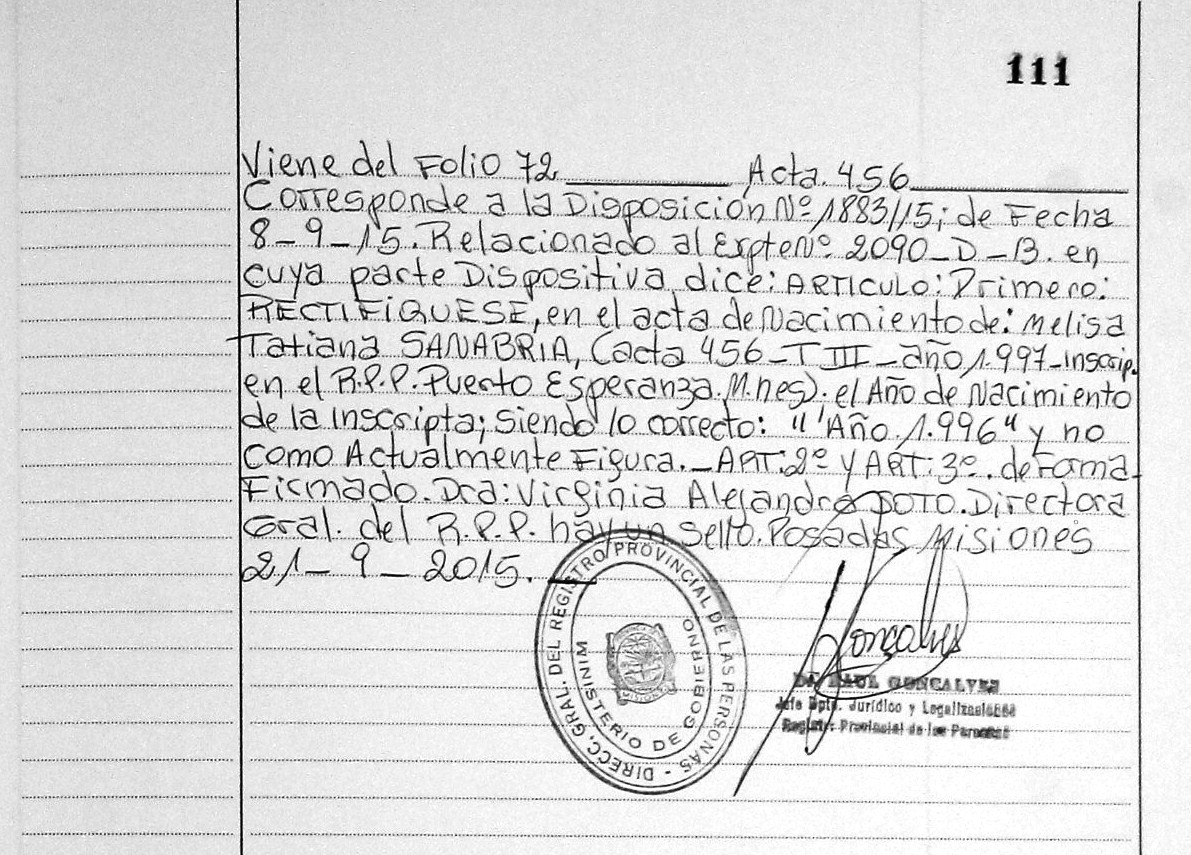 111
Viene del Folio 72 Acta. 456
Corresponde a la Disposición Nº 1883/15; de Fecha
8-9-15. Relacionado al Expte Nº 2090-D-13. en
cuya parte Dispositiva dice: ARTICULO: Primero:
RECTIFIQUESE, en el acta de Nacimiento de: Melisa
Tatiana SANABRIA, (acta 456-T III-año 1.997-inscrip.
en el R.P.P. Puerto Esperanza. M.nes). el Año de Nacimiento
de la inscripta; siendo lo correcto: "Año 1.996" y no
como Actualmente Figura.-ART: 2º y ART: 3º. de Forma-
Firmado. Dra: Virginia Alejandra SOTO. Directora
Gral. del R.P.P. hay un sello. Posadas Misiones
21-9-2015.
DIRECC. GRAL. DEL REGISTRO PROVINCIAL DE LAS PERSONAS -
MINISTERIO DE GOBIERNO
Goncalves
RAUL GONCALVES
Jefe Dpto. Jurídico y Legalizaciones
Registro Provincial de las Personas